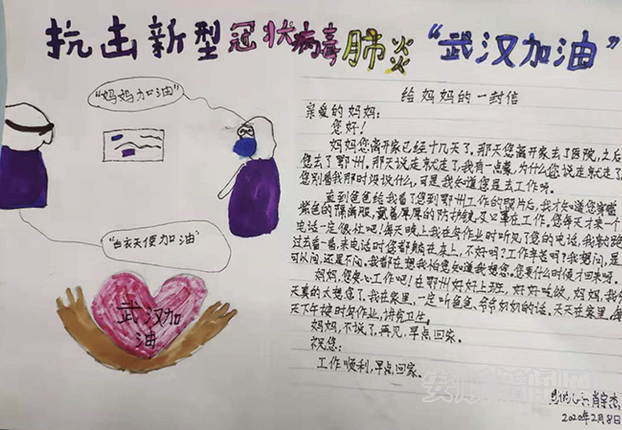 抗击新型冠状病毒肺炎 “武汉加油”
“妈妈加油”
“白衣天使加油”
武汉加
油
给妈妈的一封信
亲爱的妈妈:
您好!
妈妈您离开家已经十几天了。那天您离开家去了医院,之后
您去了鄂州。那天说走就走了,我有一点懵,为什么您说走就走了
您别看我那时没说什么,可是我知道您是去工作呀。
直到爸爸给我看了您到鄂州工作的照片后,我才知道您穿着
紫色的隔离服,戴着厚厚的防护镜,又要在工作。您每天才来一个
电话一定很忙吧!每天晚上我在写作业时听见了您的电话,我就跑
过去看一看,来电话时您都躺在床上,不好吗?工作辛苦吗?我想问,是
可以问,还是不问。我都在想我怕您知道我想您。您要什么时候才回来呀。
妈妈,您安心工作吧!在鄂州好好上班,好好吃饭,妈妈,我今
天真的太想您了,我在家里,一定听爸爸、爷爷奶奶的话,天天在家里,每
天下午按时写作业,讲究卫生。
妈妈,不说了,再见,早点回家。
祝您:
工作顺利,早点回家。
2020年2月8日